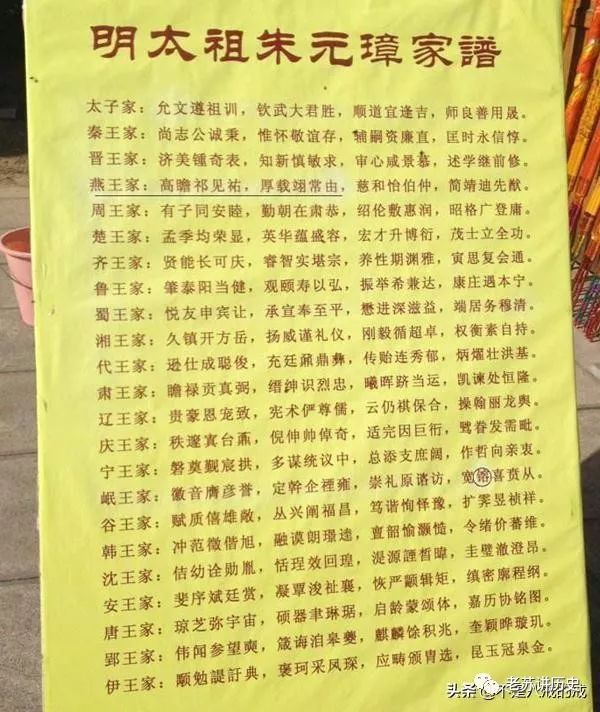 明太祖朱元璋家譜
太子家：允文遵祖训，钦武大君胜，顺道宜逢吉，师良善用晟。
秦王家：尚志公诚秉，惟怀敬谊存，辅嗣资廉直，匡时永信惇。
晋王家：济美锺奇表，知新慎敏求，审心咸景慕，述学继前修。
燕王家：高瞻祁见祐，厚载翊常由，慈和怡伯仲，简靖迪先猷。
周王家：有子同安睦，勤朝在肃恭，绍伦敷惠润，昭格广登庸。
楚王家：孟季均荣显，英华蕴盛容，宏才升博衍，茂士立全功。
齐王家：贤能长可庆，睿智实堪宗，养性期渊雅，寅思复会通。
鲁王家：肇泰阳当健，观颐寿以弘，振举希兼达，康庄遇本宁。
蜀王家：悦友申宾让，承宣奉至平，懋进深滋益，端居务穆清。
湘王家：久镇开方岳，扬威谨礼仪，刚毅循超卓，权衡素自持。
代王家：逊仕成聪俊，充廷鼐鼎彝，传贻连秀郁，炳燿壮洪基。
肃王家：瞻禄贡真弼，缙绅识烈忠，曦晖跻当运，凯谏处恒隆。
辽王家：贵豪恩宠致，宪术俨尊儒，云仍祺保合，操翰丽龙舆。
庆王家：秩邃寘台鼒，倪伸帅倬奇，适完因巨衍，眷发需毗。
宁王家：磐奠觐宸拱，多谋统议中，总添支庶阔，作哲向亲衷。
岷王家：徽音膺彦誉，定幹企禋雍，崇礼原谘访，宽镕喜贲从。
谷王家：赋质僖雄敞，丛兴阐福昌，笃谐恂怿豫，扩霁昱祯祥。
韩王家：冲范徵偕旭，融谟朗璟逵，亶韶愉灏慥，令绪价蕃维。
沈王家：佶幼诠勋胤，恬珵效回瑝，湜源諲晢暐，圭璧澈澄昂。
安王家：斐序斌廷赏，凝覃浚祉襄，恢严颛辑矩，缜密廓程纲。
唐王家：琼芝弥宇宙，硕器聿琳琚，启龄蒙颂体，嘉历协铭图。
郢王家：伟闻参望奭，箴诲洎皋夔，麒麟馀积兆，奎颖晔璇玑。
伊王家：颙勉諟訏典，褒珂采凤琛，应畴颁胄选，昆玉冠泉金。
头条
老苏讲历史